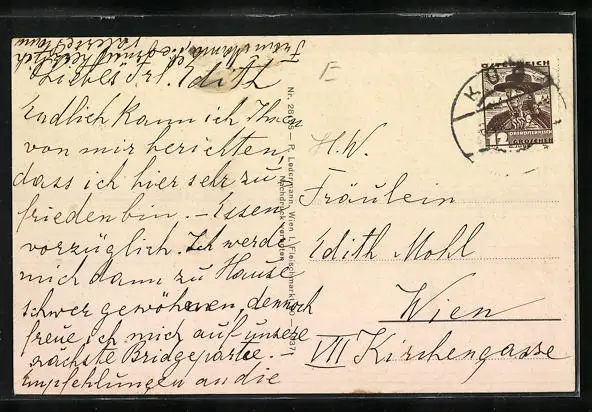 Liebes Frl. Edith
Endlich kann ich Ihnen
von mir berichten,
dass ich hier sehr zu
frieden bin. – Essen
vorzüglich. Ich werde
mich dann zu Hause
schwer gewöhnen, dennoch
freue ich mich auf unsere
nächste Bridgepartie. –
Empfehlungen an die
Nr. 28135 — P. Ledermann, Wien I, Fleischmarkt
Nachdruck verboten
H. W.
Fräulein
Edith Mohl
Wien
VII Kirchengasse
E
ÖSTERREICH
OBERÖSTERREICH
12 GROSCHEN
KU